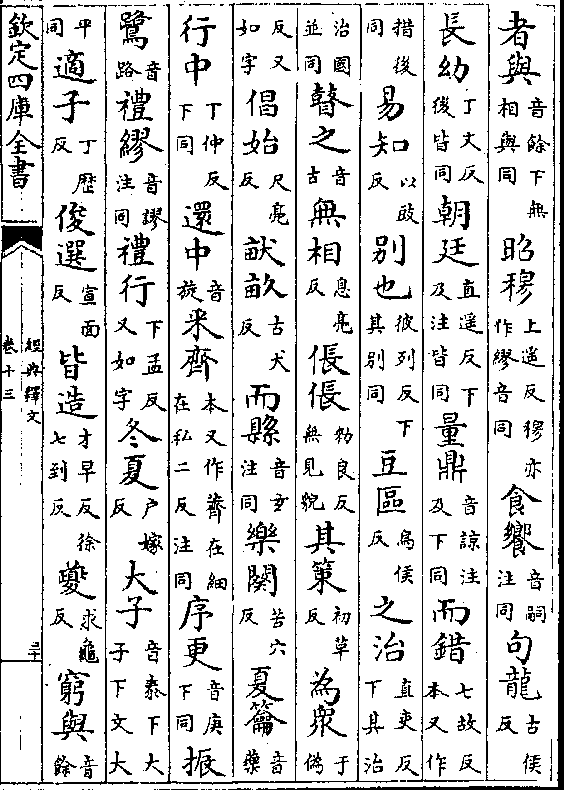 者與音餘下無相與同昭穆上遥反穆亦作繆音同食饗音嗣注同句龍古侯反
長㓜丁丈反後皆同朝廷直遥反下及注皆同量鼎音諒注及下同而錯七故反本又作
措後同易知以䜴反别也彼列反下其别同豆區烏侯反之治直吏反下其治
治國並同瞽之音古無相息亮反倀倀勑良反無見貌其策初革反為衆于偽
反又如字倡始尺亮反畎畝古犬反而縣音玄注同樂闋苦穴反夏籥音藥
行中丁仲反下同還中音旋采齊本又作薺在細在私二反注同序更音庚下同振
鷺音路禮繆音謬注同禮行下孟反又如字冬夏户嫁反大子音泰下大子下文大
平同適子丁歴反俊選宣面反皆造才早反徐七到反夔求龜反窮與音餘
欽定四庫全書
經典釋文
卷十三
三十